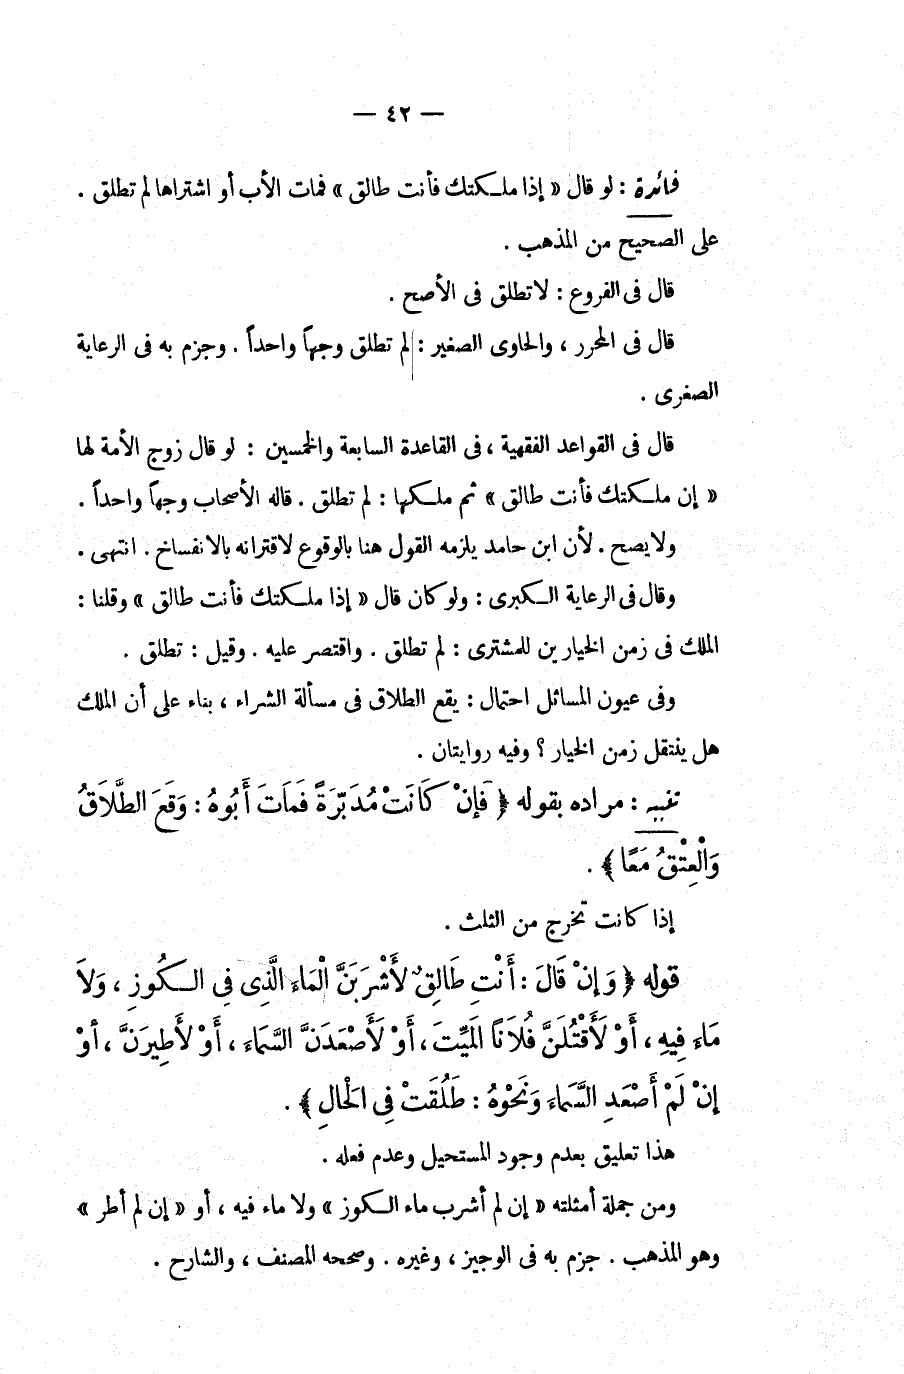 — ٤٢ —
فائدة : لو قال « إذا ملكتك فأنت طالق » فمات الأب أو اشتراها لم تطلق .
على الصحيح من المذهب .
قال فى الفروع : لا تطلق فى الأصح .
قال فى المحرر ، والحاوى الصغير : لم تطلق وجهاً واحداً . وجزم به فى الرعاية
الصغرى .
قال فى القواعد الفقهية ، فى القاعدة السابعة والخمسين : لو قال زوج الأمة لها
« إن ملكتك فأنت طالق » ثم ملكها : لم تطلق . قاله الأصحاب وجهاً واحداً .
ولا يصح . لأن ابن حامد يلزمه القول هنا بالوقوع لاقترانه بالانفساخ . انتهى .
وقال فى الرعاية الكبرى : ولو كان قال « إذا ملكتك فأنت طالق » وقلنا :
الملك فى زمن الخيارين للمشترى : لم تطلق . واقتصر عليه . وقيل : تطلق .
وفى عيون المسائل احتمال : يقع الطلاق فى مسألة الشراء ، بناء على أن الملك
هل ينتقل زمن الخيار ؟ وفيه روايتان .
تنبيه : مراده بقوله ﴿ فَإِنْ كَانَتْ مُدَبَّرَةً فَمَاتَ أَبُوهُ : وَقَعَ الطَّلَاقُ
وَالْعِتْقُ مَعًا ﴾ .
إذا كانت تخرج من الثلث .
قوله ﴿ وَإِنْ قَالَ : أَنْتِ طَالِقٌ لَأَشْرَبَنَّ الْمَاءَ الَّذِى فِى الْكُوزِ ، وَلَا
مَاءَ فِيهِ ، أَوْ لَأَقْتُلَنَّ فُلَانًا الْمَيِّتَ ، أَوْ لَأَصْعَدَنَّ السَّمَاءَ ، أَوْ لَأَطِيرَنَّ ، أَوْ
إِنْ لَمْ أَصْعَدِ السَّمَاءَ وَنَحْوُهُ : طَلُقَتْ فِى الْحَالِ ﴾ .
هذا تعليق بعدم وجود المستحيل وعدم فعله .
ومن جملة أمثلته « إن لم أشرب ماء الكوز » ولا ماء فيه ، أو « إن لم أطر »
وهو المذهب . جزم به فى الوجيز ، وغيره . وصححه المصنف ، والشارح .